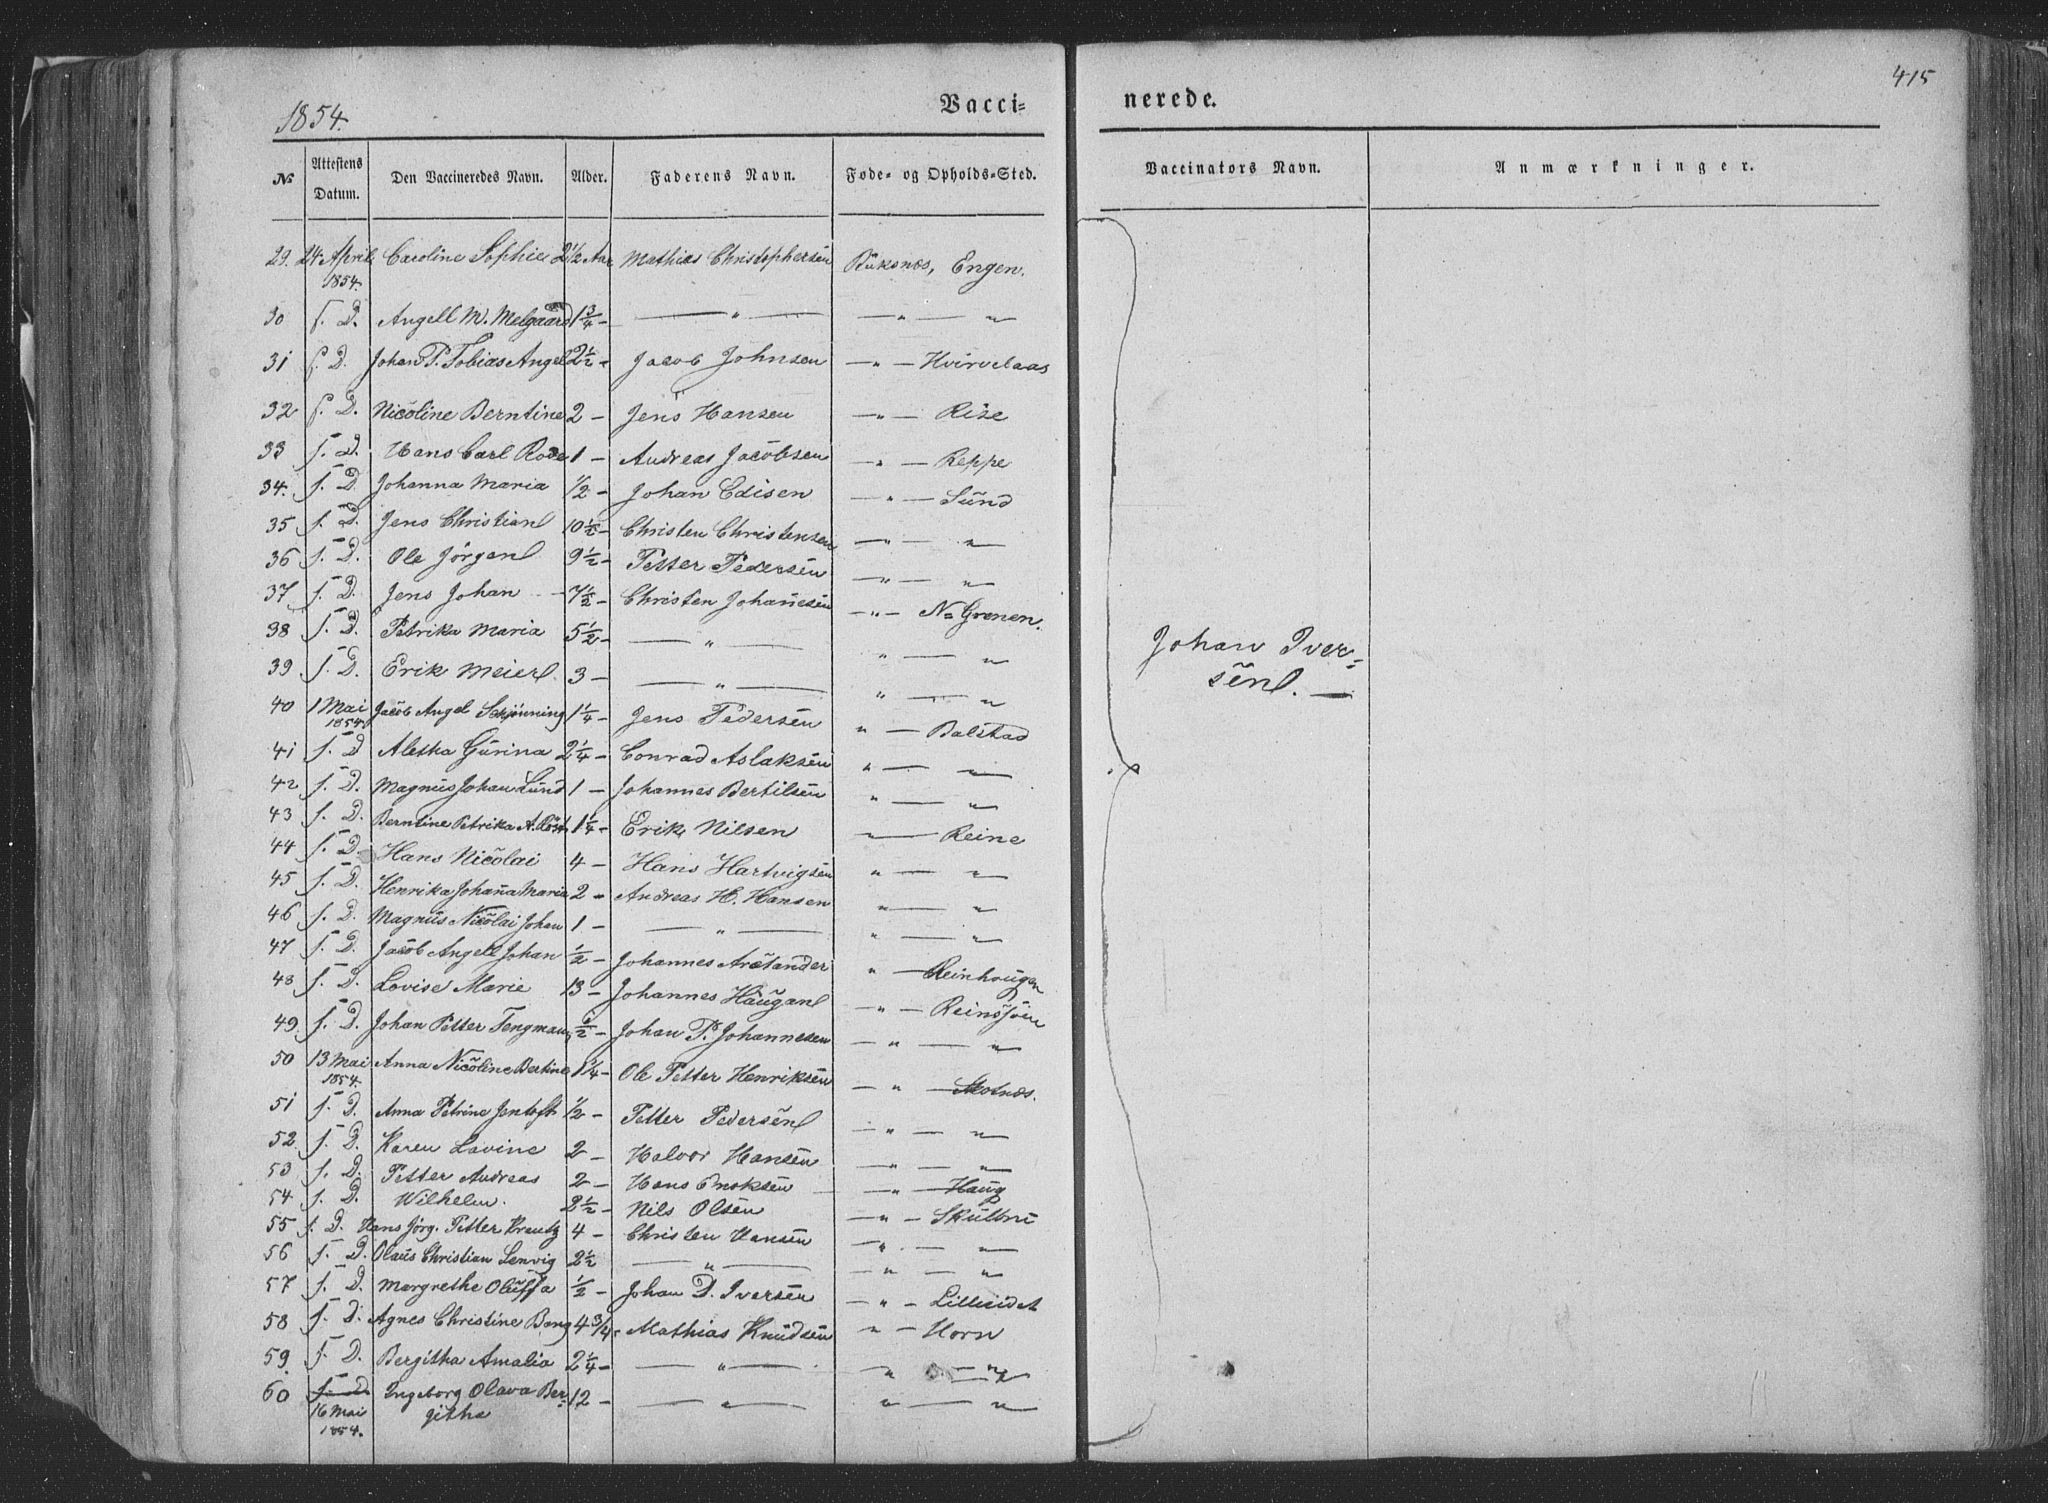 415
1854.
Vacci= nerede.
No Attestens Datum. Den Vaccineredes Navn. Alder. Faderens Navn. Føde= og Opholds=Sted. Vaccinators Navn. Anmærkninger.
29. 24 April 1854. Caroline Sophie 2½ Aar Mathias Christophersen Buksnes, Engen.
30 s. D. Angell M. Melgaard 1¾ - — " — — " — "
31 s. D. Johan P. Tobias Angel 2½ - Jacob Johnsen — " — Hvirvelaas
32 s. D. Nicoline Berntine 2 - Jens Hansen — " — Rise
33 s. D. Hans Carl Rode 1 - Andreas Jacobsen — " — Reppe
34. s. D Johanna Maria ½ - Johan Edisen — " — Sund
35 s. D. Jens Christian 10½ - Christen Christensen — " — "
36 s. D. Ole Jörgen 9½ - Petter Pedersen — " — "
37 s. D. Jens Johan 7½ - Christen Johanesen — " — N= Grenen.
38 s. D. Petrika Maria 5½ - — " — " — "
39 s. D. Erik Meier 3 - — " — " — "
40 1 Mai 1854. Jacob Angel Schjönning 1¼ - Jens Pedersen " — Balstad
41 s. D Aletha Gurina 2¼ - Conrad Aslaksen " — "
42 s. D. Magnus Johan Lund 1 - Johannes Bertilsen " — "
43 s. D. Berntine Petrika A. Röst 1¼ - Erik Nilsen — Reine
44 s. D. Hans Nicolai 4 - Hans Hartvigsen " — "
45 s. D. Henrika Johana Maria 2 - Andreas H. Hansen " — "
46 s. D. Magnus Nicolai Johan 1 - — " — " — "
47 s. D. Jacob Angell Johan ½ - Johannes Arctander " — Reinhougen
48 s. D. Lovise Marie 13 - Johannes Haugan — " — Reinsjöen
49. s. D. Johan Petter Tengman ½ - Johan P. Johannesen — " — "
50 13 Mai 1854. Anna Nicoline Bertine 1¼ - Ole Petter Henriksen — " Skotnes.
51 s. D. Anna Petrine Jentoft ½ - Petter Pedersen — " — "
52 s. D. Karen Lovine 2 - Halvor Hansen — " — "
53 s. D. Petter Andreas 2 - Hans Enoksen — " — Haug
54 s. D. Wilhelm 2½ - Nils Olsen — " —
55 s. D. Hans Jörg. Petter Kreutz 4 - Christen Hansen — " — "
56 s. D. Olaus Christian Lenvig 2½ — " — — " — "
57 s. D. Margrethe Oluffa ½ - Johan D. Iversen — " — Lilleeidet
58 s. D. Agnes Christine Bang 4¾ - Mathias Knudsen " — Horn
59. s. D. Bergitha Amalia 2¼ - — " — " — "
60 s. D 16 Mai 1854. Ingeborg Olava Ber=githa 12 - — " — " — "
Johan Iver=
sen. —